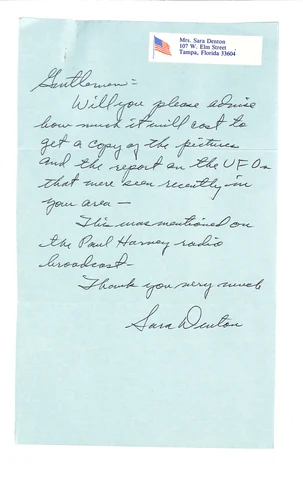 Mrs. Sara Denton
107 W. Elm Street
Tampa, Florida 33604
Gentlemen:-
Will you please advise
how much it will cost to
get a copy of the pictures
and the report on the UFOs
that were seen recently in
your area -
This was mentioned on
the Paul Harvey radio
broadcast -
Thank you very much
Sara Denton